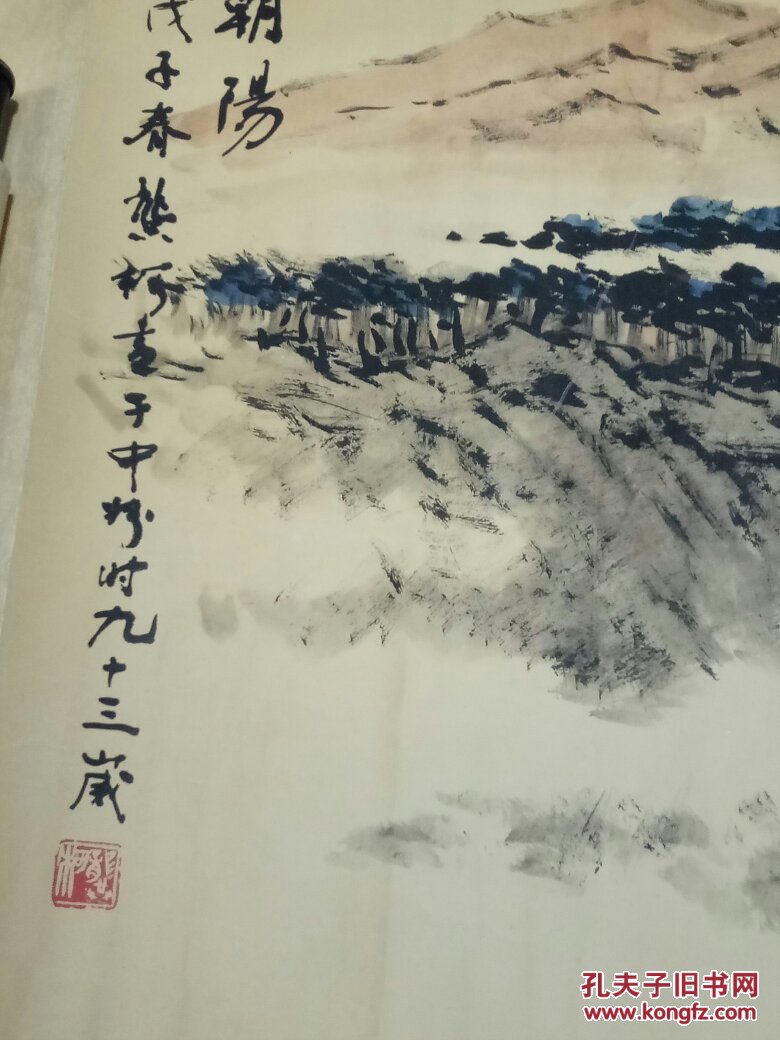 朝陽
戊子春龔柯畫于中 时九十三歲
孔夫子旧书网
www.kongfz.com